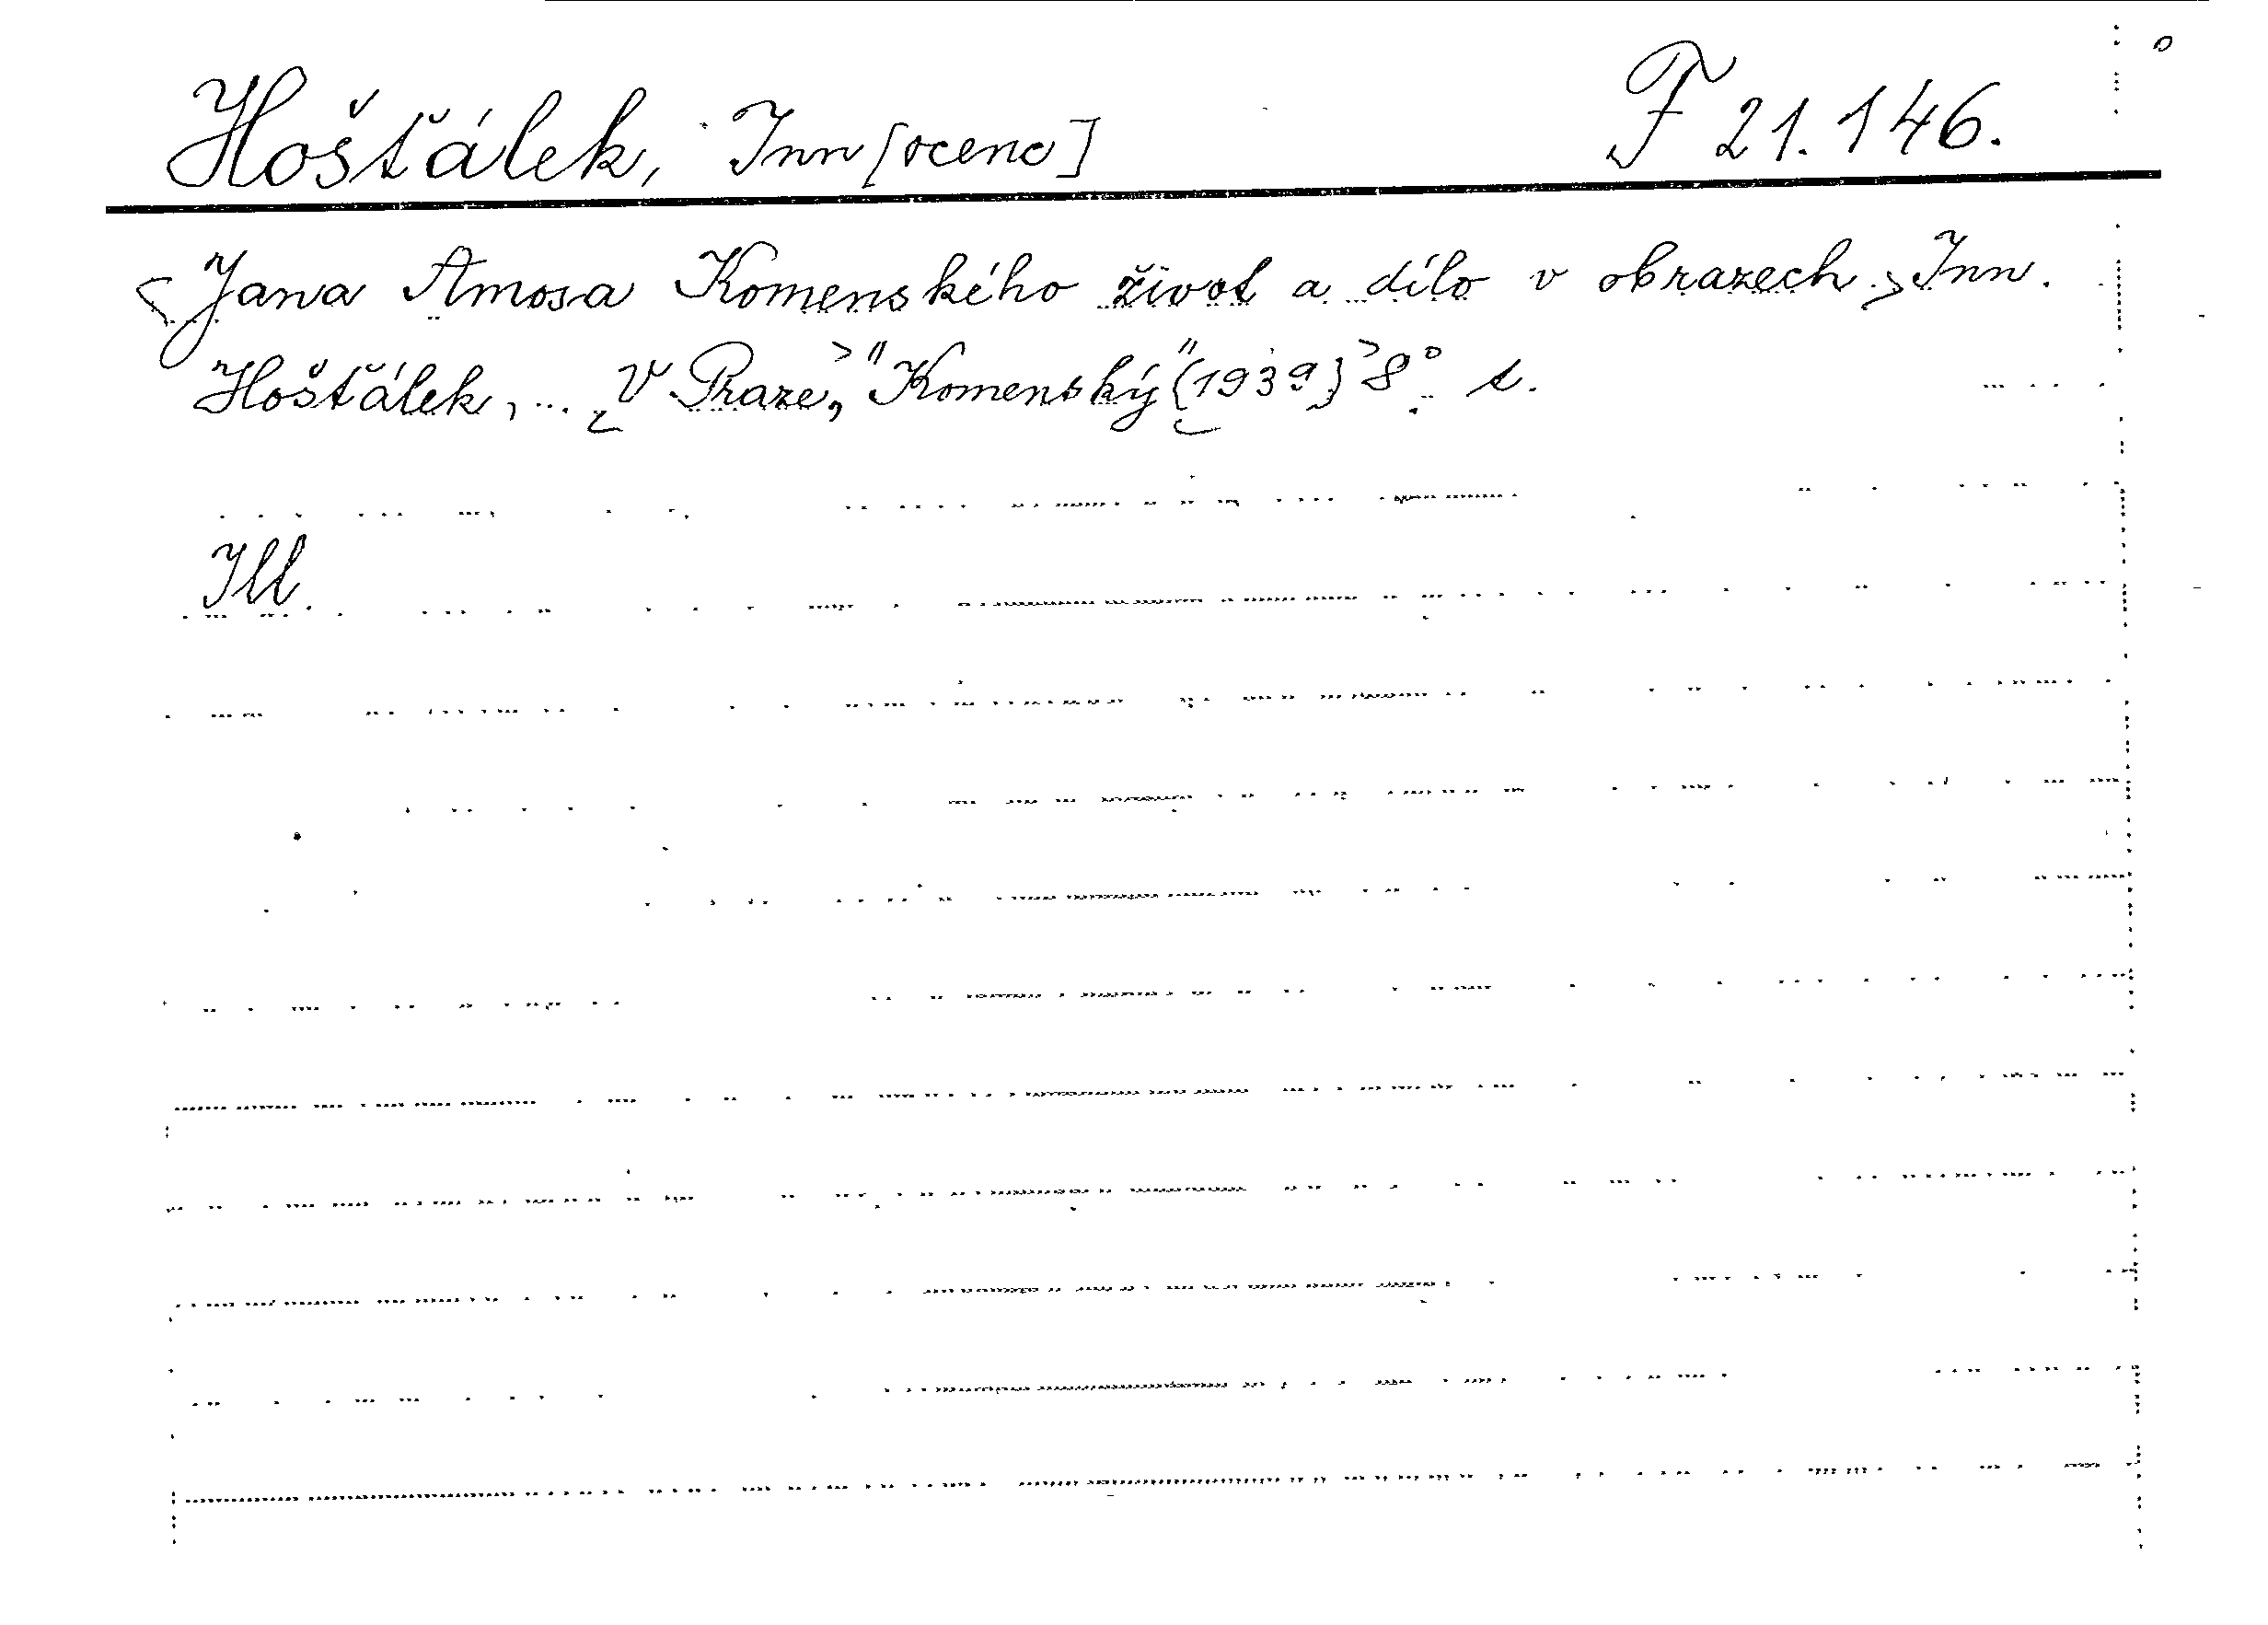 Hošťálek, Inn[ocenc] F 21.146.
<Jana Amosa Komenského život a dílo v obrazech.> Inn.
Hošťálek, ... <V Praze,> "Komenský" <(1939)> 8° s.
Ill.